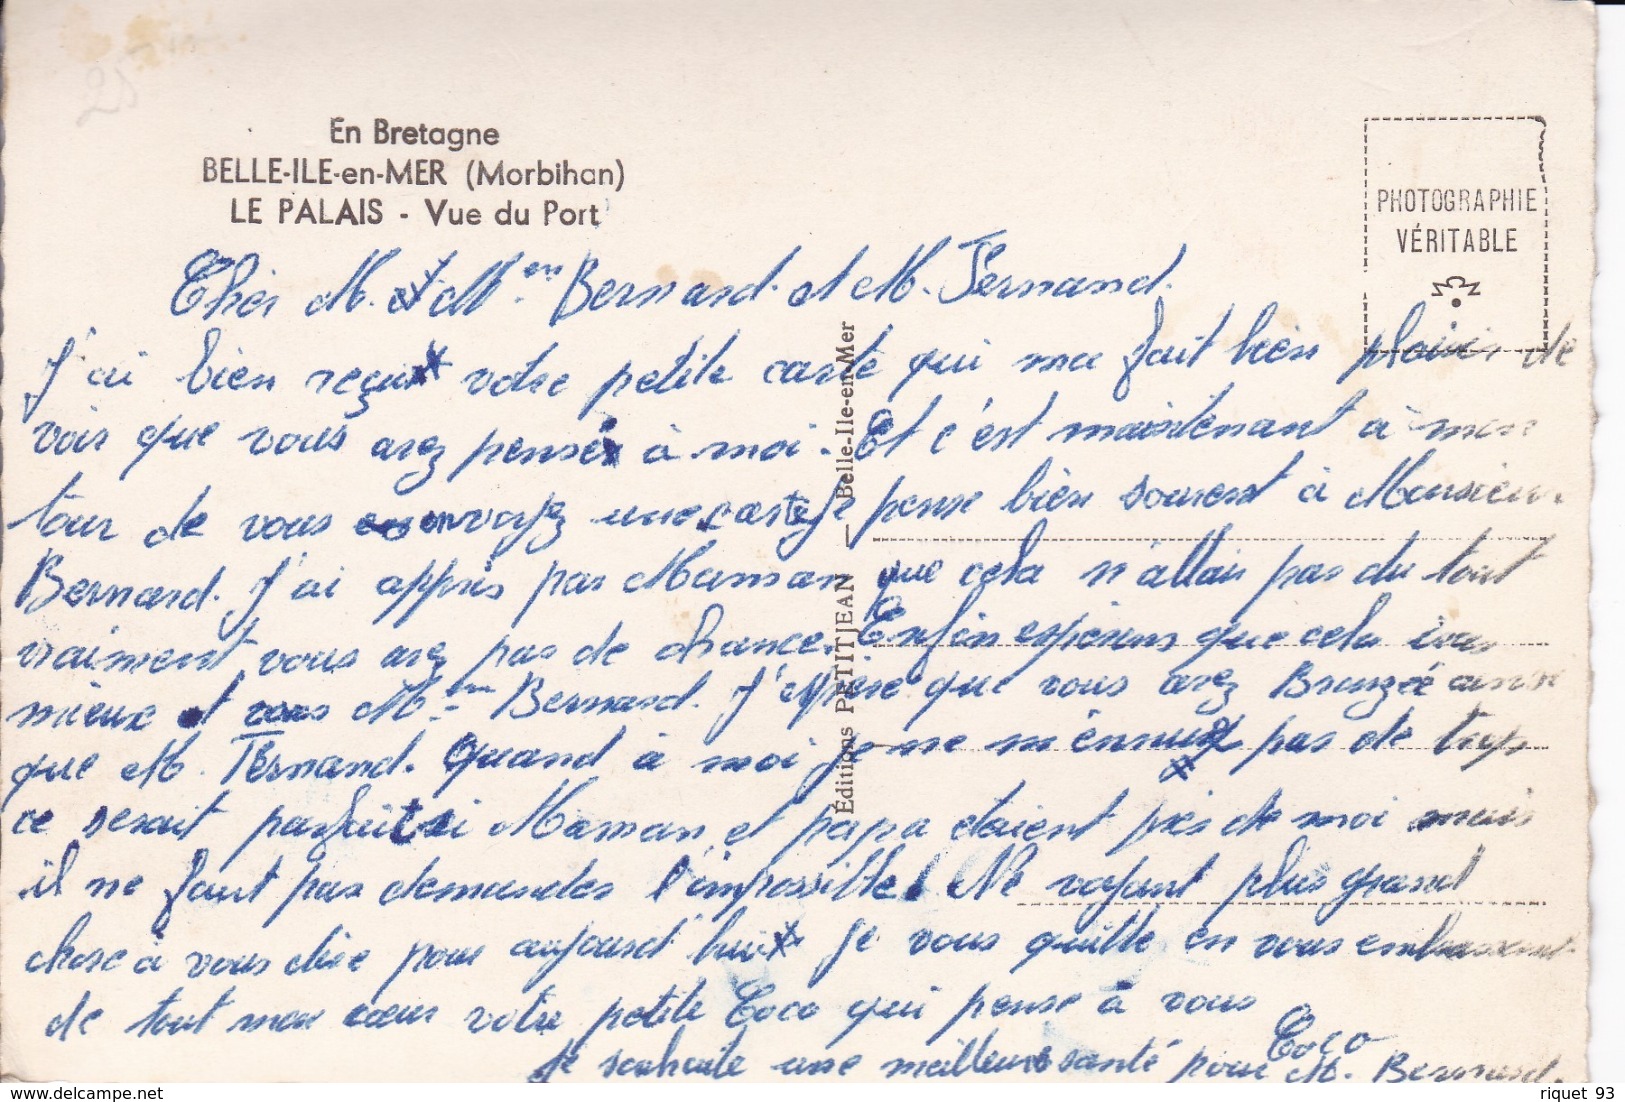 En Bretagne
BELLE-ILE-en-MER (Morbihan)
LE PALAIS - Vue du Port
PHOTOGRAPHIE
VÉRITABLE
Éditions PETITJEAN — Belle-Ile-en-Mer
Cher M. et Mme Bernard. et M. Fernand.
J'ai bien reçu votre petite carte qui ma fait bien plaisir de
voir que vous avez pensé à moi. Et c'est maintenant à mon
tour de vous envoyez une carte je pense bien souvent à Monsieur
Bernard. J'ai appris par Maman que cela n'allais pas du tout
vraiment vous avez pas de chance. Enfin esperons que cela iras
mieux et vous Mme Bernard. J'espère que vous avez Bronzée ainsi
que M. Fernand. Quand à moi je ne m'ennui pas de trop
ce serait parfait si Maman et papa etaient près de moi mais
il ne faut pas demander l'impossible. Ne voyant plus grand
chose à vous dire pour aujourd'hui Je vous quitte en vous embrassant
de tout mon cœur votre petite Coco qui pense à vous
Coco
Je souhaite une meilleure santé pour M. Bernard.
delcampe.net
riquet 93